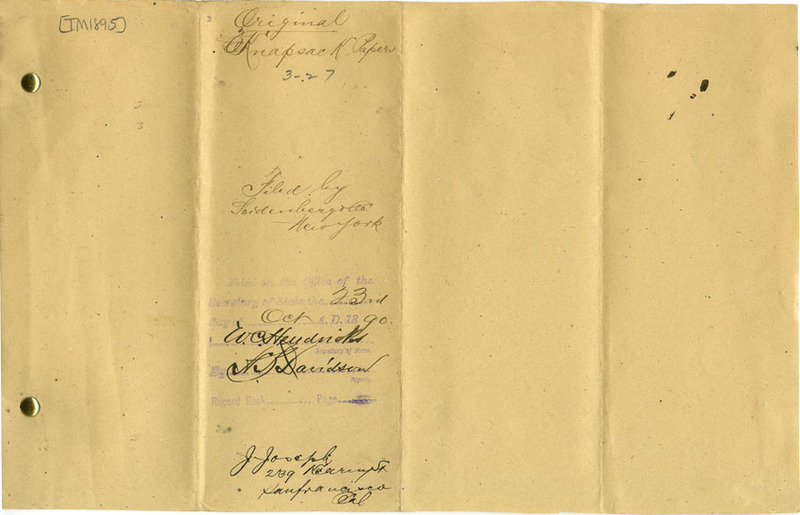 [TM1895]
Original
Knapsack Paper
3-27
Filed by
Seidenberg & Co.
New York
Filed in the Office of the
Secretary of State the 23rd
day of Oct A.D. 1890.
W.C. Hendricks
Secretary of State.
By A.B. Davidson
Deputy
Record Book Page
J. Joseph
239 Kearny St
Sanfrancisco
Cal